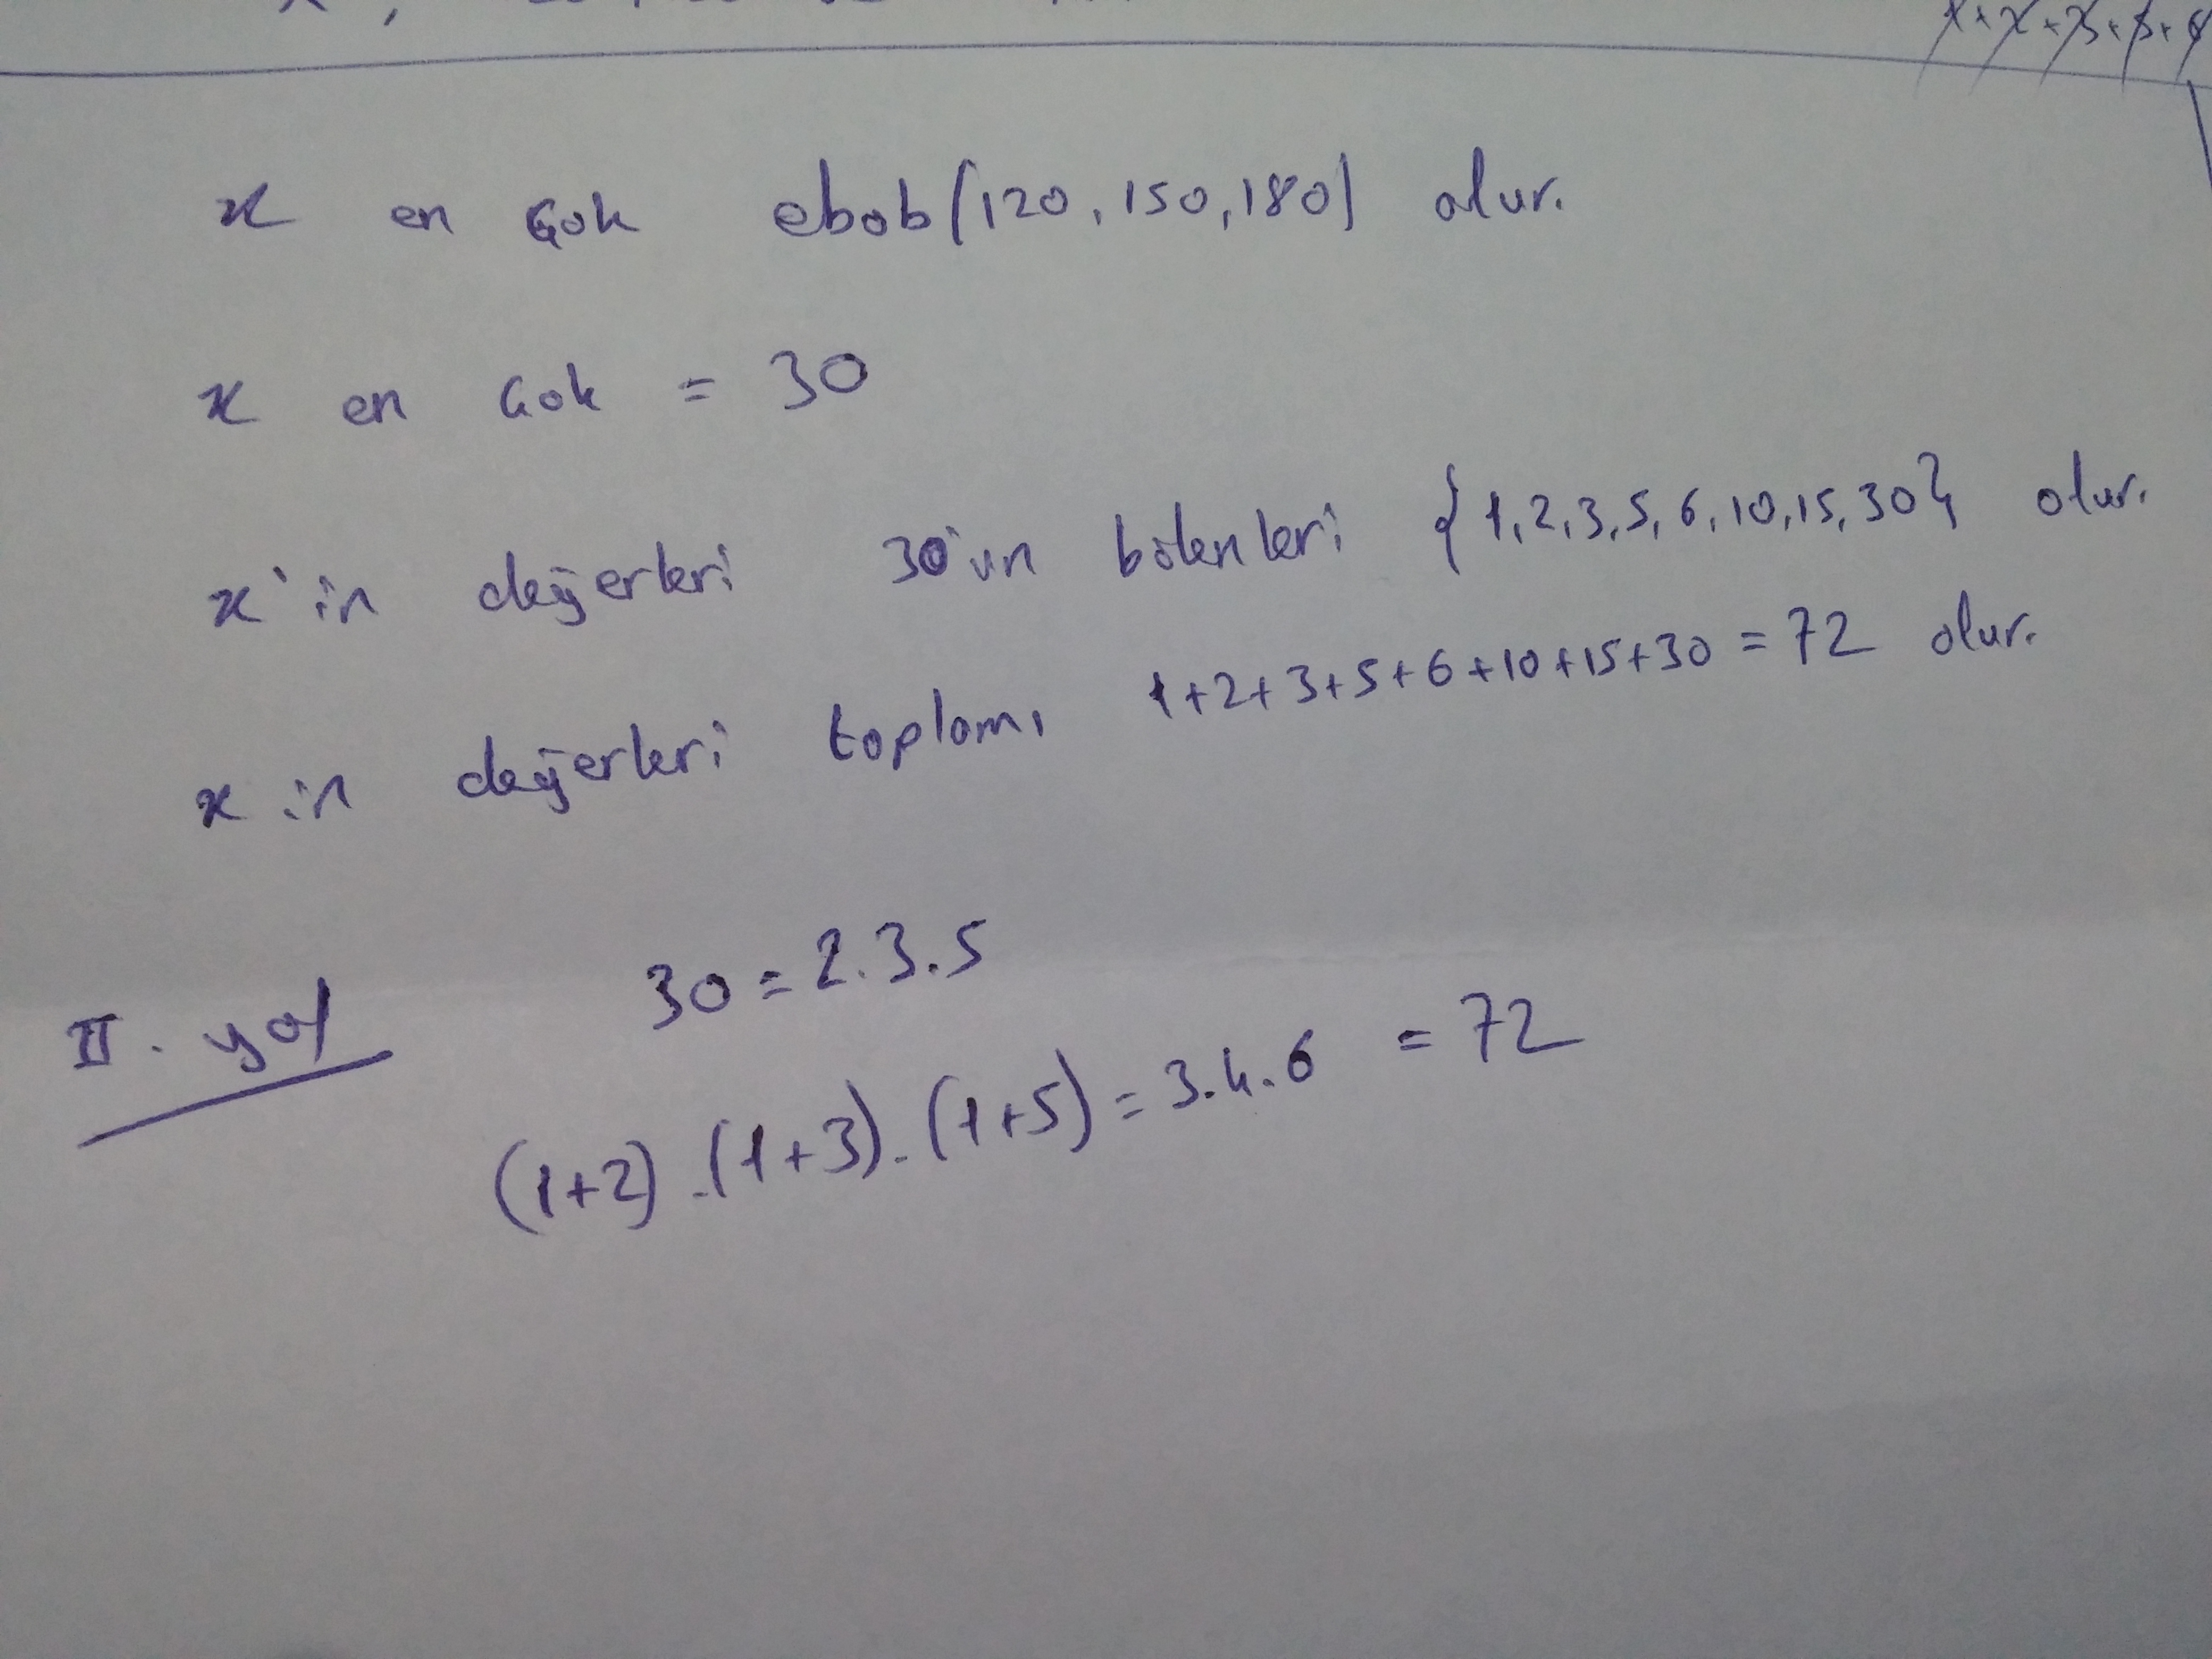 x en çok ebob(120,150,180) olur.
x en çok = 30
x'in değerleri 30'un bölenleri {1,2,3,5,6,10,15,30} olur.
x in değerleri toplamı 1+2+3+5+6+10+15+30=72 olur.
II. yol 30=2.3.5
(1+2).(1+3).(1+5)=3.4.6 = 72